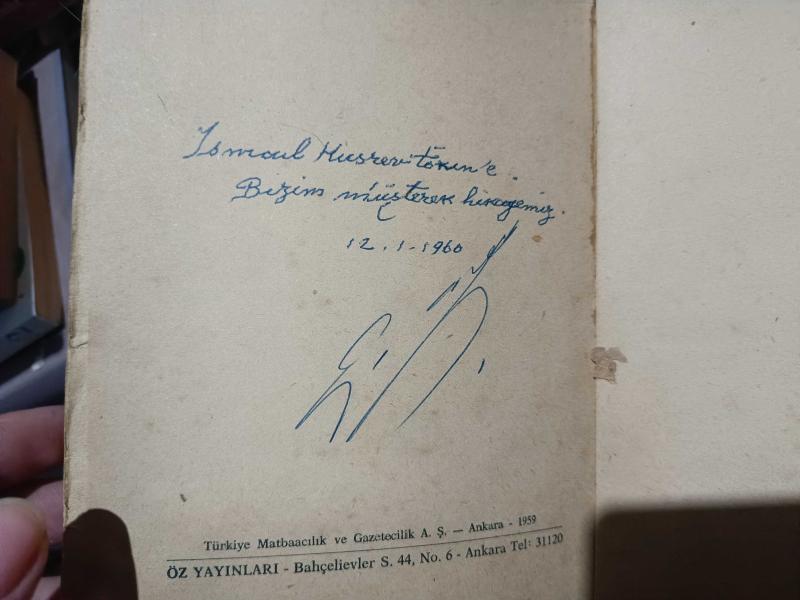 İsmail Hüsrev Tökin'e.
Bizim müşterek hikayemiz.
12.1.1960
Türkiye Matbaacılık ve Gazetecilik A. Ş. — Ankara - 1959
ÖZ YAYINLARI - Bahçelievler S. 44, No. 6 - Ankara Tel: 31120